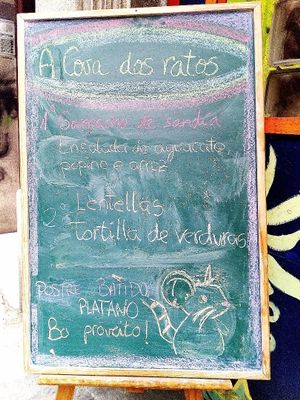 A Cova dos ratos
1 Gazpacho de sandía
Ensalada de aguacate,
pepino e arroz
2 Lentellas
Tortilla de verduras
POSTRE BATIDO
PLATANO
Bo proveito!